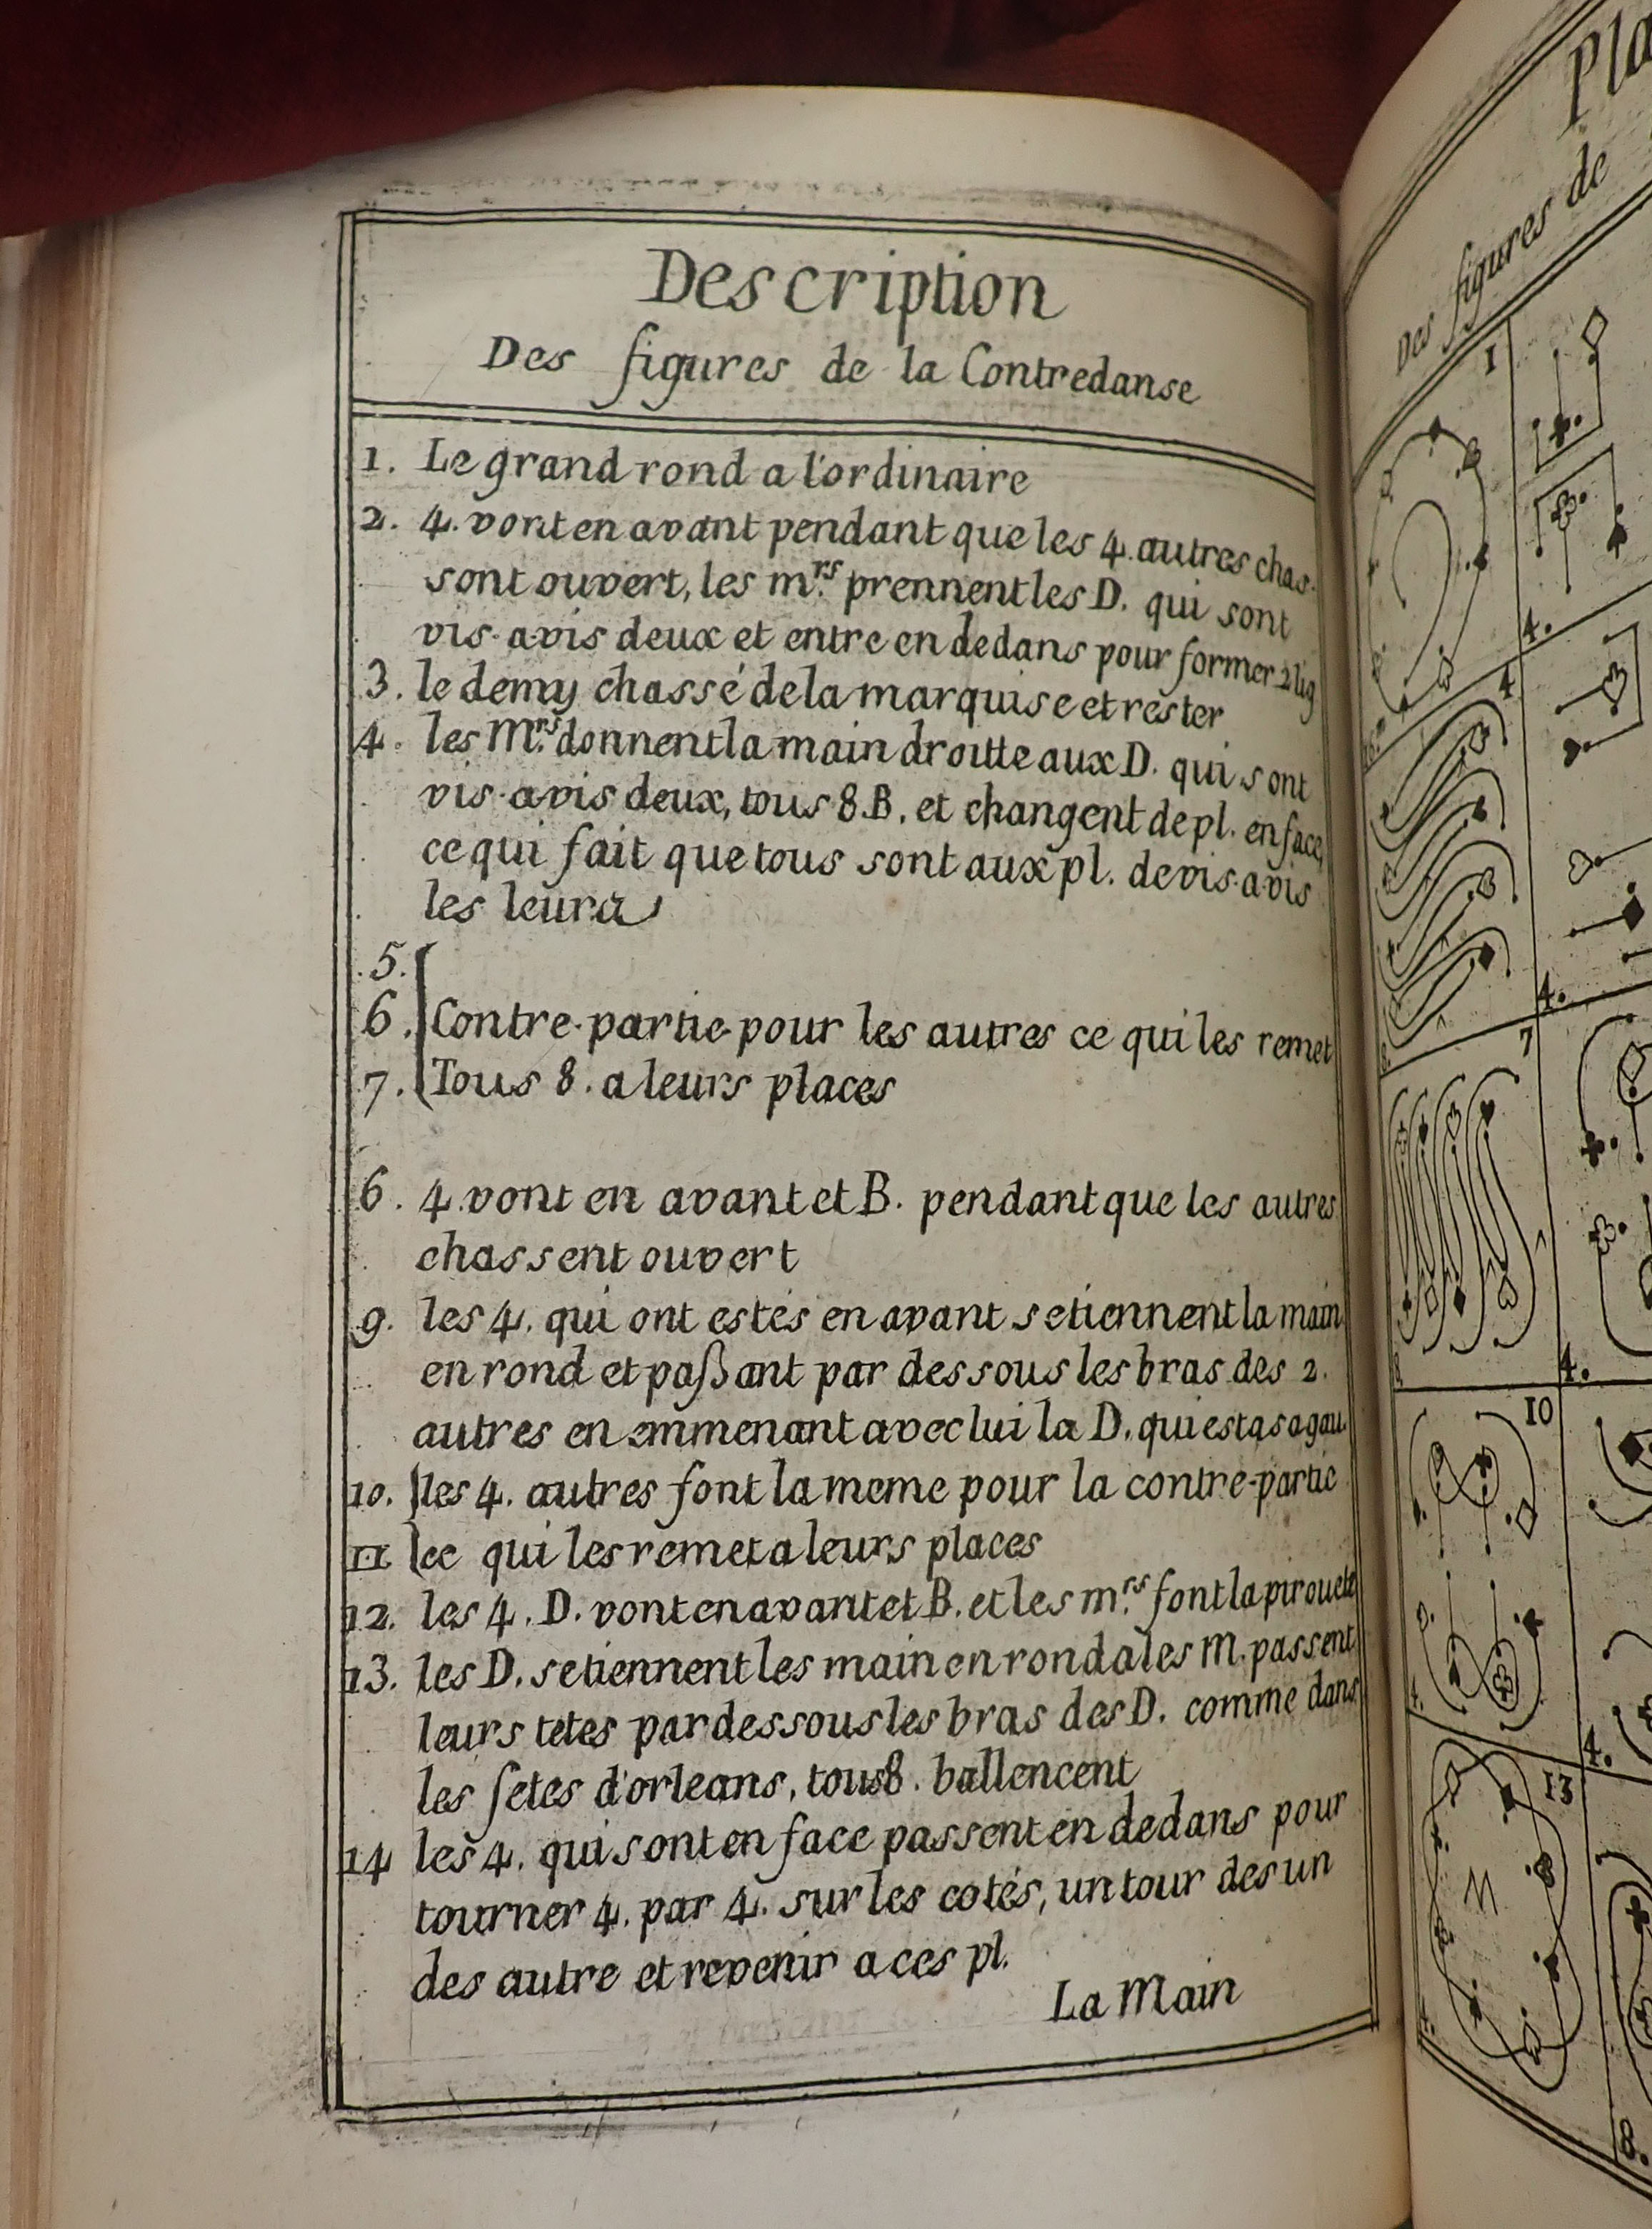 Description
Des figures de la Contredanse
1. Le grand rond a l'ordinaire
2. 4. vont en avant pendant que les 4. autres chas-
sont ouvert, les m.rs prennent les D. qui sont
vis-a-vis deux et entre en dedans pour former 2 lig
3. le demy chassé de la marquise et rester
4. les M.rs donnent la main droitte aux D. qui sont
vis-a-vis deux, tous 8.B. et changent de pl. en face,
ce qui fait que tous sont aux pl. de vis-a-vis
les leurs
5.
6. Contre-partie pour les autres ce qui les remet
7. Tous 8. a leurs places
6. 4. vont en avant et B. pendant que les autres
chassent ouvert
9. les 4. qui ont estés en avant se tiennent la main
en rond et paßant par dessous les bras des 2.
autres en emmenant avec lui la D. qui est a sa gau.
10. les 4. autres font la meme pour la contre-partie
11 ce qui les remet a leurs places
12. les 4. D. vont en avant et B. et les m.rs font la pirouete
13. les D. se tiennent les main en rond a les M. passent
leurs tetes par dessous les bras des D. comme dans
les fetes d'orleans, tous 8. ballencent
14 les 4. qui sont en face passent en dedans pour
tourner 4. par 4. sur les cotés, un tour des un
des autre et revenir a ces pl.
La Main
Pla
Des figures de
1
4.
4
4.
7
4.
10
4.
13
8.